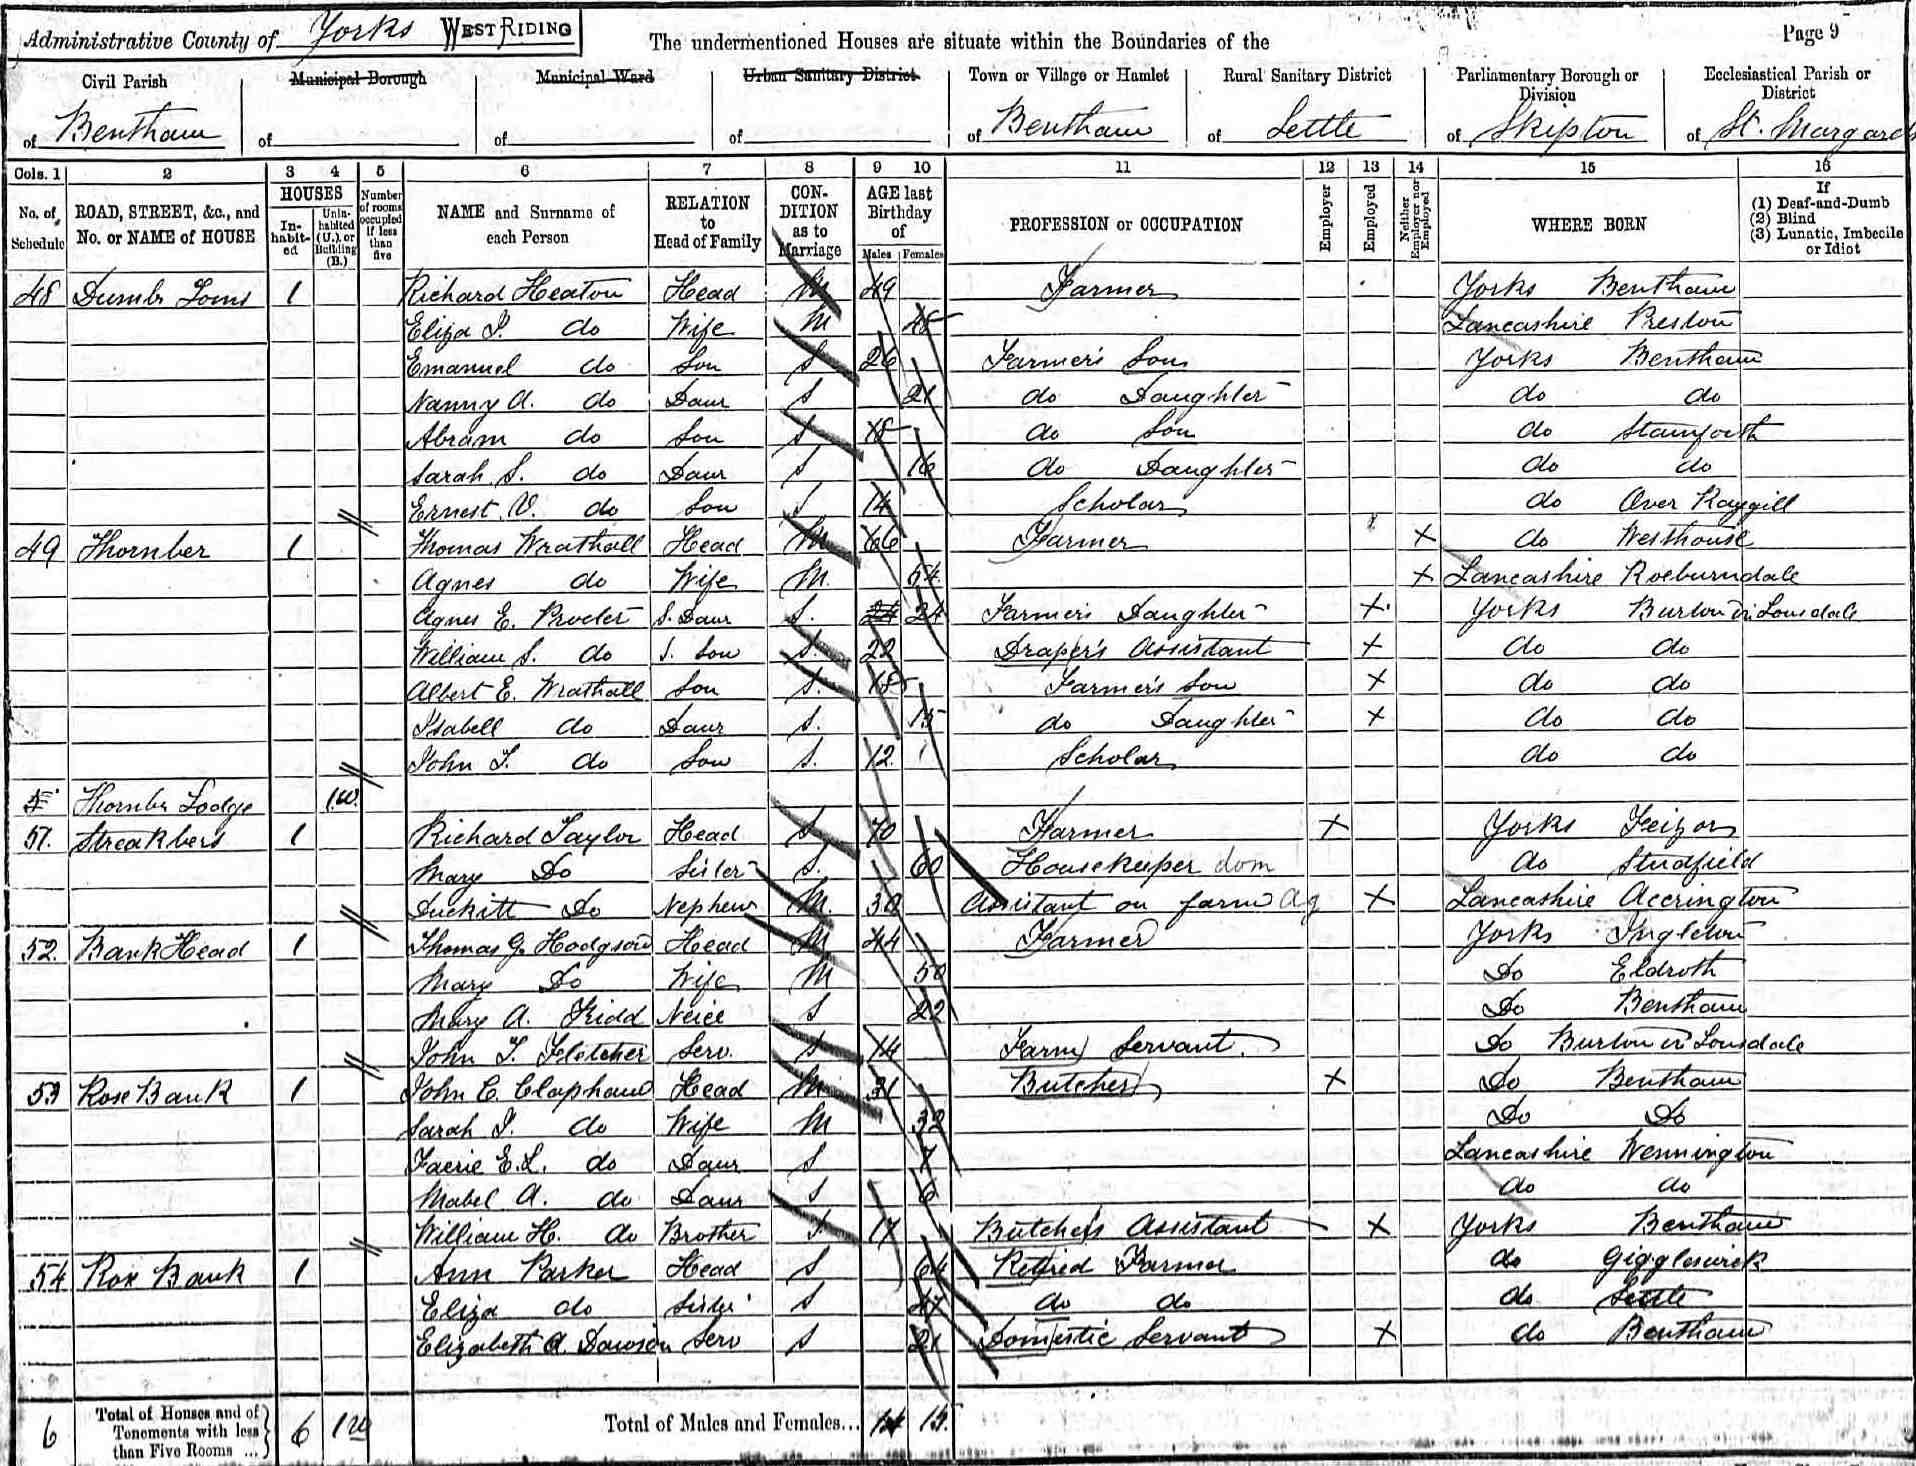 Administrative County of Yorks WEST RIDING
The undermentioned Houses are situate within the Boundaries of the
Page 9
Civil Parish of Bentham
Municipal Borough of
Municipal Ward of
Urban Sanitary District of
Town or Village or Hamlet of Bentham
Rural Sanitary District of Settle
Parliamentary Borough or Division of Skipton
Ecclesiastical Parish or District of St. Margarets
Cols. 1 2 3 4 5 6 7 8 9 10 11 12 13 14 15 16
No. of Schedule
ROAD, STREET, &c., and No. or NAME of HOUSE
HOUSES
In-habit-ed
Unin-habited (U.), or Building (B.)
Number of rooms occupied if less than five
NAME and Surname of each Person
RELATION to Head of Family
CON-DITION as to Marriage
AGE last Birthday of
Males Females
PROFESSION or OCCUPATION
Employer
Employed
Neither Employer nor Employed
WHERE BORN
If (1) Deaf-and-Dumb (2) Blind (3) Lunatic, Imbecile or Idiot
48 Dumbr Toms 1 Richard Heaton Head M 49 Farmer Yorks Bentham
Eliza J. do Wife M 48 Lancashire Preston
Emanuel do Son S 26 Farmer's Son Yorks Bentham
Nanny A. do Daur S 21 do Daughter do do
Abram do Son S 18 do Son do Stainforth
Sarah S. do Daur S 16 do Daughter do do
Ernest V. do Son S 14 Scholar do Over Raygill
49 Thornber 1 Thomas Wrathall Head M 66 Farmer X do Westhouse
Agnes do Wife M. 54 X Lancashire Roeburndale
Agnes E. Procter S. Daur S. 24 24 Farmer's Daughter X Yorks Burton in Lonsdale
William S. do S. Son S. 22 Draper's Assistant X do do
Albert E. Wrathall Son S. 18 Farmer's Son X do do
Isabell do Daur S. 15 do Daughter X do do
John T. do Son S. 12 Scholar do do
Thornbr Lodge 1.U.
51. Streakbers 1 Richard Taylor Head S 70 Farmer X Yorks Feizor
Mary Do Sister S. 60 Housekeeper dom do Studfield
Duckitt Do Nephew M. 30 Assistant on farm Ag X Lancashire Accrington
52. Bank Head 1 Thomas G. Hodgson Head M 44 Farmer Yorks Ingleton
Mary Do Wife M 50 Do Eldroth
Mary A. Kidd Neice S 22 Do Bentham
John T. Fletcher Serv. S 14 Farm Servant. Do Burton in Lonsdale
53 Rose Bank 1 John C. Clapham Head M 31 Butcher X Do Bentham
Sarah J. do Wife M 32 Do Do
Faerie E.L. do Daur S 7 Lancashire Wennington
Mabel A. do Daur S 6 do do
William H. do Brother S 17 Butchers Assistant X Yorks Bentham
54 Rose Bank 1 Ann Parker Head S 64 Retired Farmer do Giggleswick
Eliza do Sister S 47 do do do Settle
Elizabeth A. Dawson Serv S 21 Domestic Servant X do Bentham
6 Total of Houses and of Tenements with less than Five Rooms ... 6 1 U Total of Males and Females... 14 15